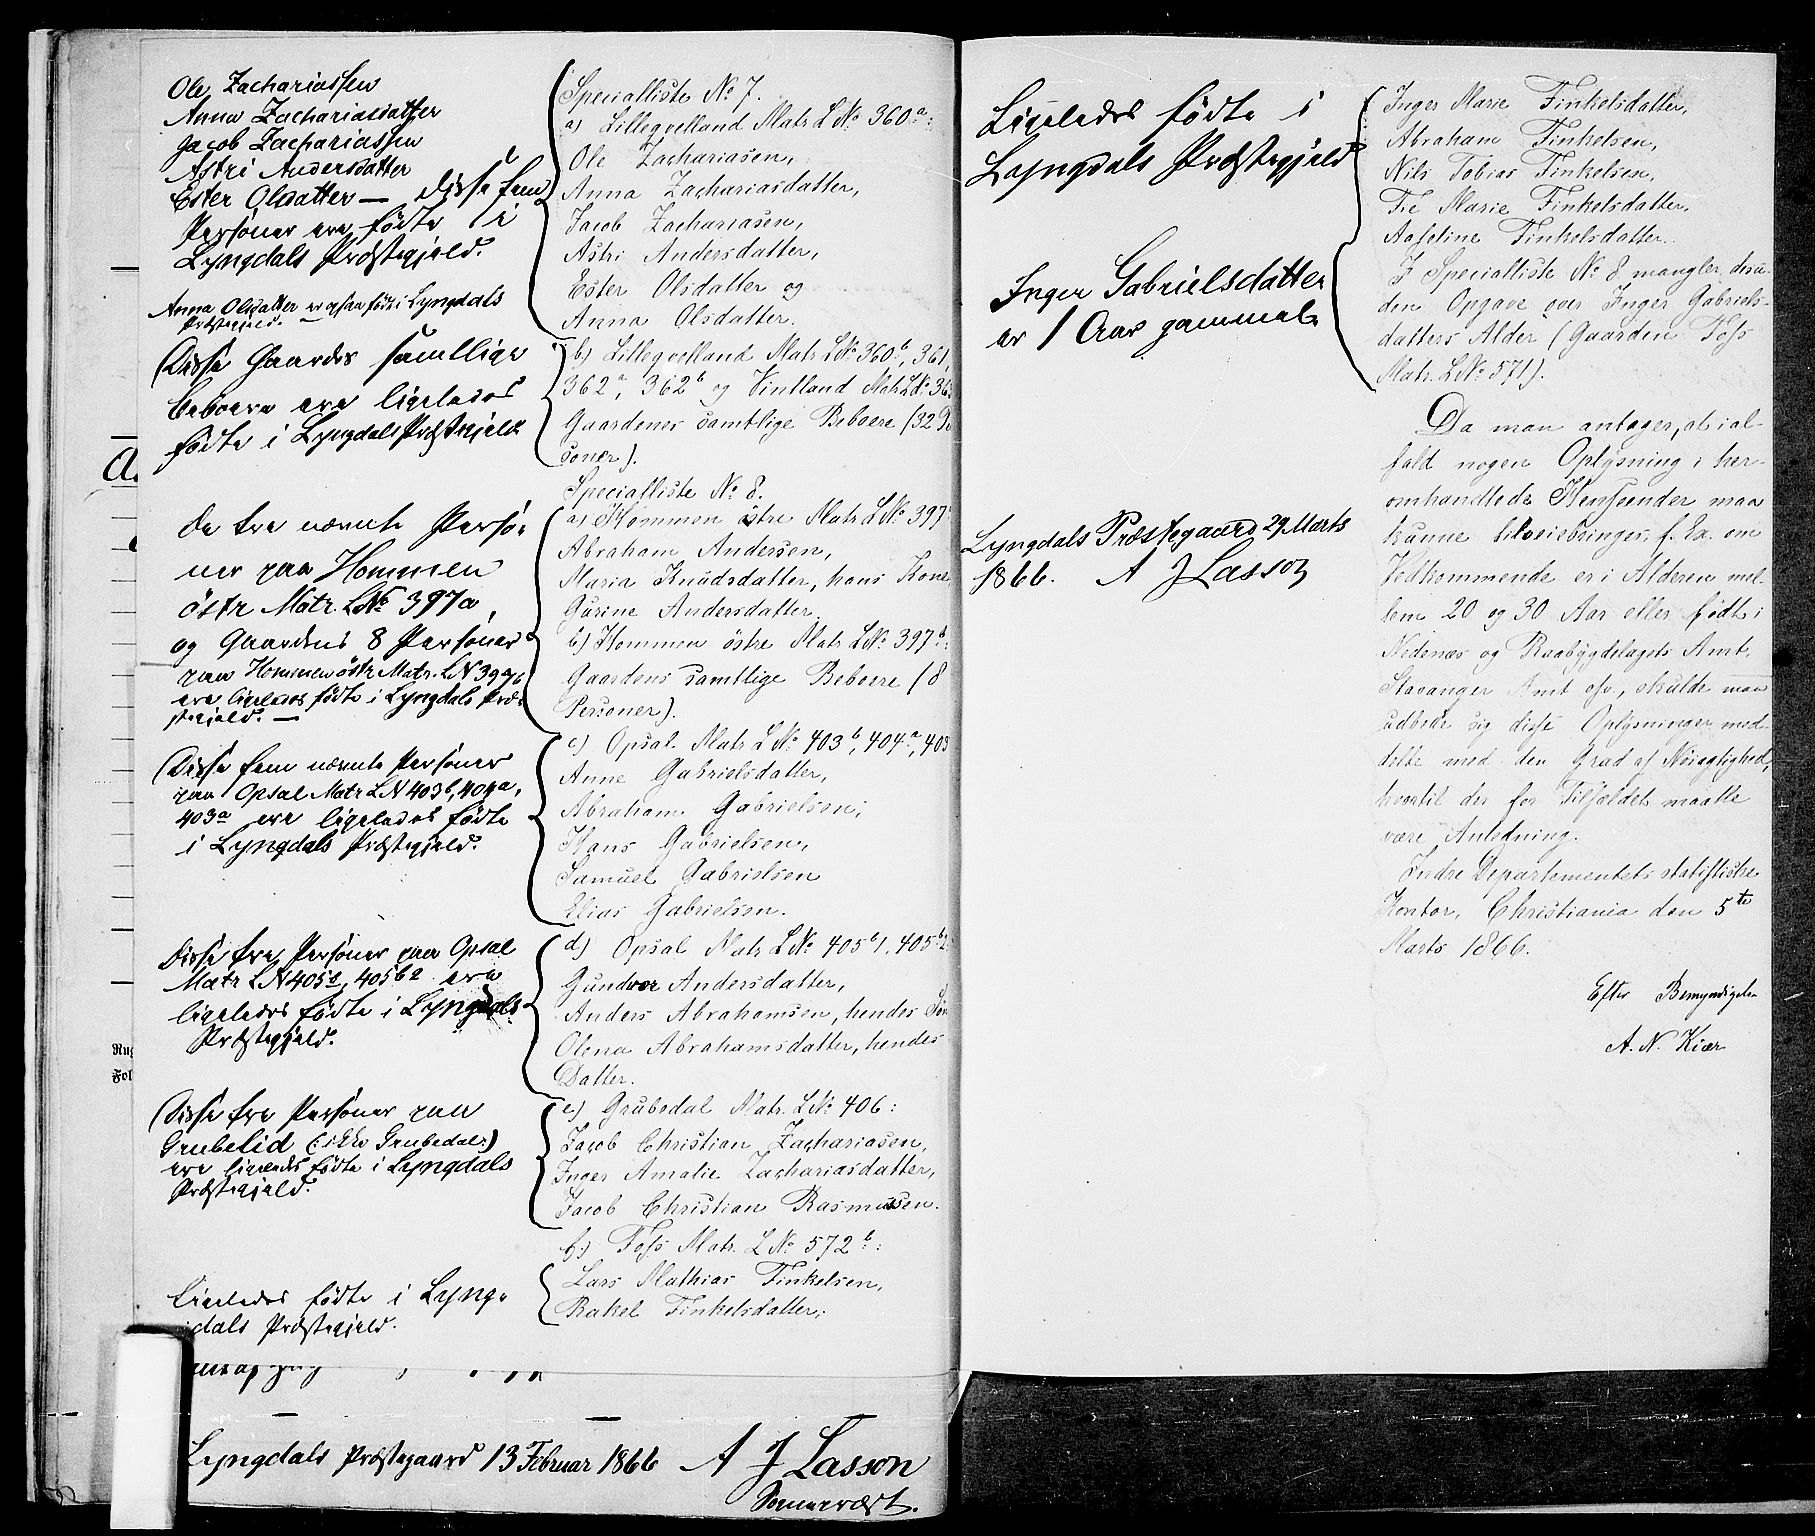 Ole Zachariassen
Anna Zachariasdatter
Jacob Zachariassen
Astri Andersdatter
Ester Olsdatter — disse fem
Personer ere fødte i
Lyngdals Præstegjeld.
Anna Olsdatter er ogsaa født i Lyngdals
Præstegjeld.
Disse Gaardes samtlige
Beboere ere ligeledes
fødte i Lyngdals Præstegjeld
de tre nævnte Perso-
ner paa Hommen
östre Matr. LNo 397a,
og Gaardens 8 Personer
paa Hommen östre Matr. LN 397b
ere ligeledes fødte i Lyngdals Præ-
stegjeld. —
Disse fem nævnte Personer
paa Opsal Matr LN 403b, 404a,
403a ere ligeledes fødte
i Lyngdals Præstegjeld.
Disse tre Personer paa Opsal
Matr LN 405, 405b2 ere
ligeledes fødte i Lyngdals
Præstegjeld.
Disse tre Personer paa
Grubelid (: ikke Grubedal:)
ere ligeledes fødte i Lyngdals
Præstegjeld.
Ligeledes fødte i Lyng-
dals Præstegjeld.
Specialliste No 7.
a) Lillegvelland Matr LNo 360a:
Ole Zachariasen,
Anna Zachariasdatter,
Jacob Zachariasen,
Astri Andersdatter,
Ester Olsdatter og
Anna Olsdatter.
b) Lillegvelland Matr LNo 360b, 361,
362a, 362b og Vintland Matr LNo 363
Gaardenes samtlige Beboere (32 Per
soner).
Specialliste No 8.
a) Hommen östre Matr LNo 397
Abraham Andersen,
Maria Knudsdatter, hans Kone
Gurine Andersdatter,
b) Hommen östre Matr LNo 397b:
Gaardens samtlige Beboere (8
Personer).
c) Opsal Matr LNo 403b, 404a, 403
Anne Gabrielsdatter,
Abraham Gabrielsen,
Hans Gabrielsen,
Samuel Gabrielsen
Elias Gabrielsen.
d) Opsal Matr LNo 405b1, 405b2
Gundvor Andersdatter,
Anders Abrahamsen, hendes Søn
Olena Abrahamsdatter, hendes
Datter.
e) Grubedal Matr. LNo 406:
Jacob Christian Zachariasen,
Inger Amalie Zachariasdatter,
Jacob Christian Rasmussen.
f) Foss Matr. LNo 572b:
Lars Mathias Finkelsen,
Rakel Finkelsdatter,
Rug
Fol
Lyngdals Præstegaard 13 Februar 1866 A J Lasson
Sogneprest.
Ligeledes fødte i
Lyngdals Præstegjeld
Inger Gabrielsdatter
er 1 Aar gammel.
Lyngdals Præstegaard 29 Marts
1866. A J Lasson
Inger Marie Finkelsdatter,
Abraham Finkelsen,
Nils Tobias Finkelsen,
Tre Marie Finkelsdatter,
Aaseline Finkelsdatter.
I Specialliste No 8 mangler desu-
den Opgave over Inger Gabriels-
datters Alder (Gaarden Foss
Matr. LNo 571).
Da man antager, at ial-
fald nogen Oplysning i her-
omhandlede Henseender maa
kunne tilveiebringes, f. Ex. om
Vedkommende er i Alderen mel-
lem 20 og 30 Aar eller født i
Nedenæs og Raabygdelagets Amt,
Stavanger Amt osv., skulde man
udbede sig disse Oplysninger med-
delte med den Grad af Nøiagtighed,
hvortil der for Tilfældet maatte
være Anledning.
Indre Departementets statistiske
Kontor, Christiania den 5te
Marts 1866.
Efter Bemyndigelse
A. N. Kiær